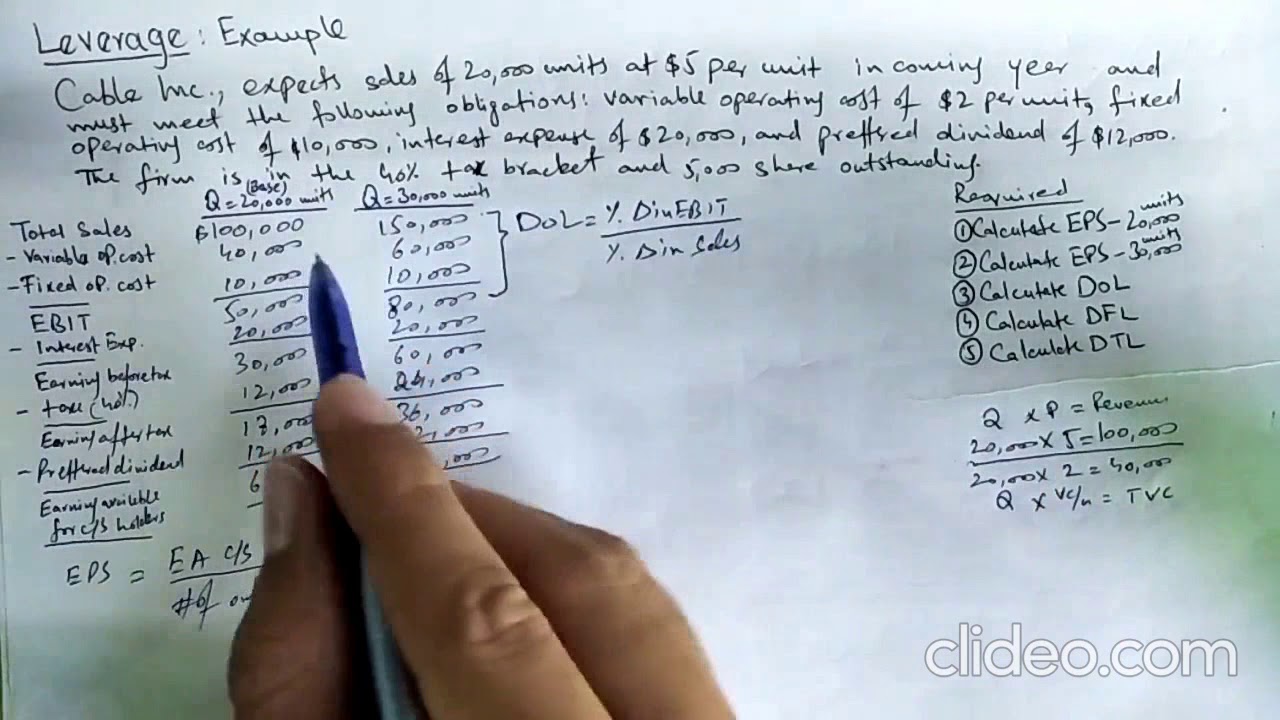 Leverage: Example
Cable Inc., expects sales of 20,000 units at $5 per unit in coming year and
must meet the following obligations: variable operating cost of $2 per unit, fixed
operating cost of $10,000, interest expense of $20,000, and preffered dividend of $12,000.
The firm is in the 40% tax bracket and 5,000 share outstanding.
(Base)
Q = 20,000 units Q = 30,000 units
Total Sales $100,000 150,000
- Variable op. cost 40,000 60,000
- Fixed op. cost 10,000 10,000
EBIT 50,000 80,000
- Interest Exp. 20,000 20,000
Earning before tax 30,000 60,000
- taxe (40%) 12,000 24,000
Earning after tax 18,000 36,000
- Preffered dividend 12,000 2,000
Earning available 6 ,000
for C/S holders
EPS = EA C/S
# of
DOL = % D in EBIT
% D in Sales
Required
① Calculate EPS - 20,000 units
② Calculate EPS - 30,000 units
③ Calculate DOL
④ Calculate DFL
⑤ Calculate DTL
Q x P = Revenue
20,000 x 5 = 100,000
20,000 x 2 = 40,000
Q x VC/u = TVC
clideo.com